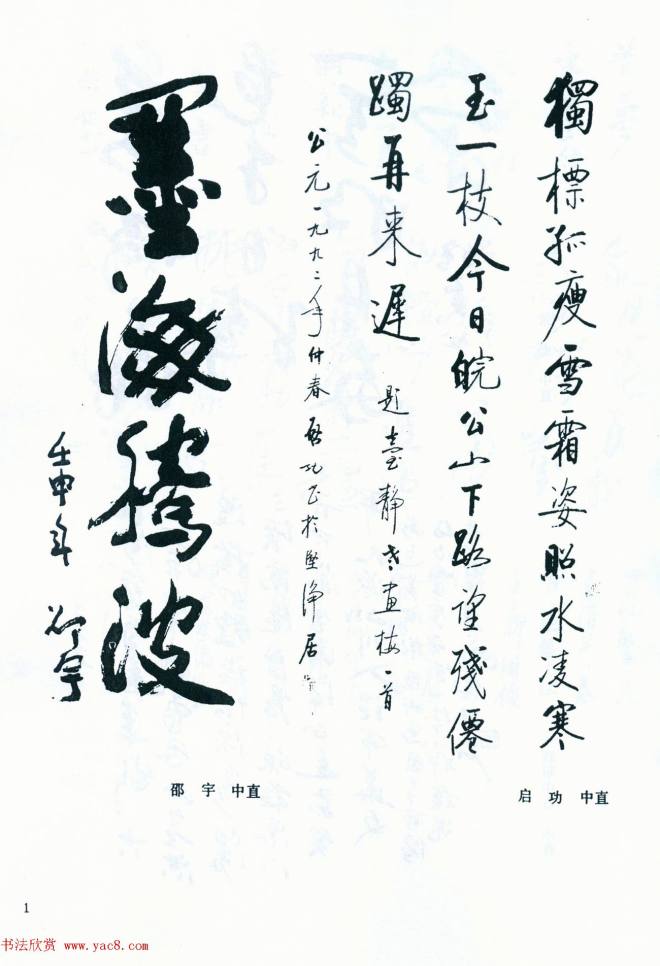 獨標孤瘦雪霜姿照水凌寒
玉一枝今日皖公山下路殘僊
躅再来遲
题臺静老画梅一首
公元一九九二年仲春啓功书於堅淨居
墨海腾波
壬申年 邵宇
启 功 中直
邵 宇 中直
1
书法欣赏 www.yac8.com